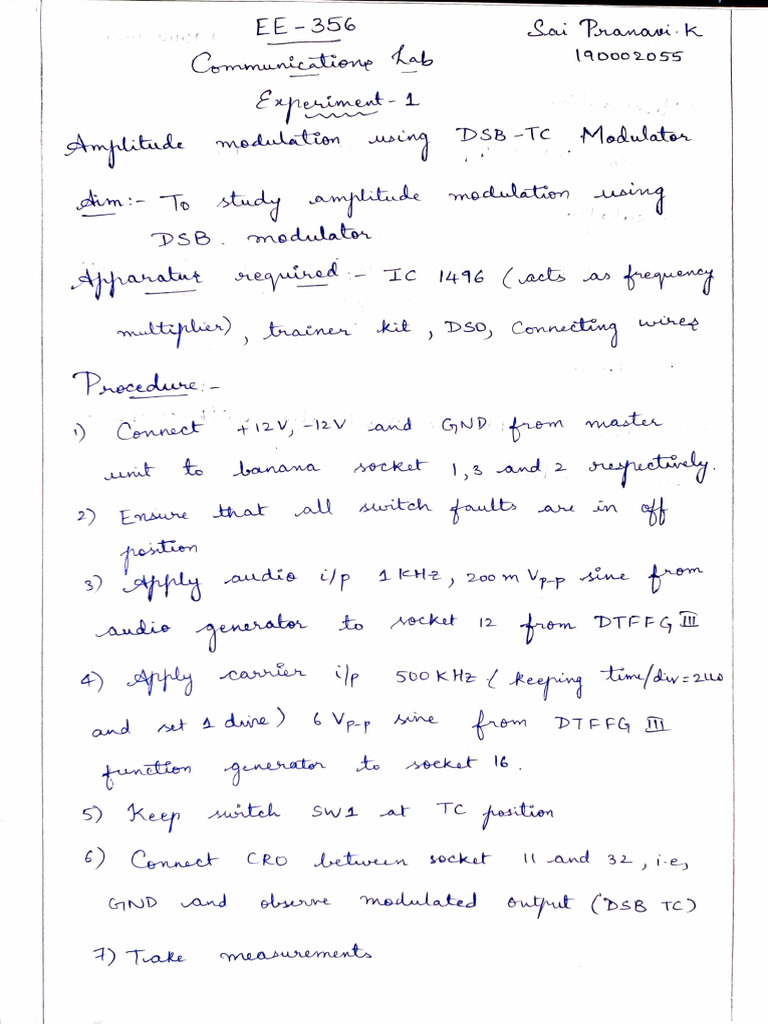 EE-356
Sai Pranavi.K
190002055
Communications Lab
Experiment-1
Amplitude modulation using DSB-TC Modulator
Aim:- To study amplitude modulation using
DSB. modulator
Apparatus required:- IC 1496 (acts as frequency
multiplier), trainer kit, DSO, Connecting wires
Procedure:-
1) Connect +12V, -12V and GND from master
unit to banana socket 1,3 and 2 respectively.
2) Ensure that all switch faults are in off
position
3) Apply audio i/p 1KHz, 200m Vp-p sine from
audio generator to socket 12 from DTFFG III
4) Apply carrier i/p 500KHz (keeping time/div=
and set 1 ) 6 Vp-p sine from DTFFG III
function generator to socket 16.
5) Keep switch SW1 at TC position
6) Connect CRO between socket 11 and 32, i.e,
GND and observe modulated output (DSB TC)
7) Take measurements